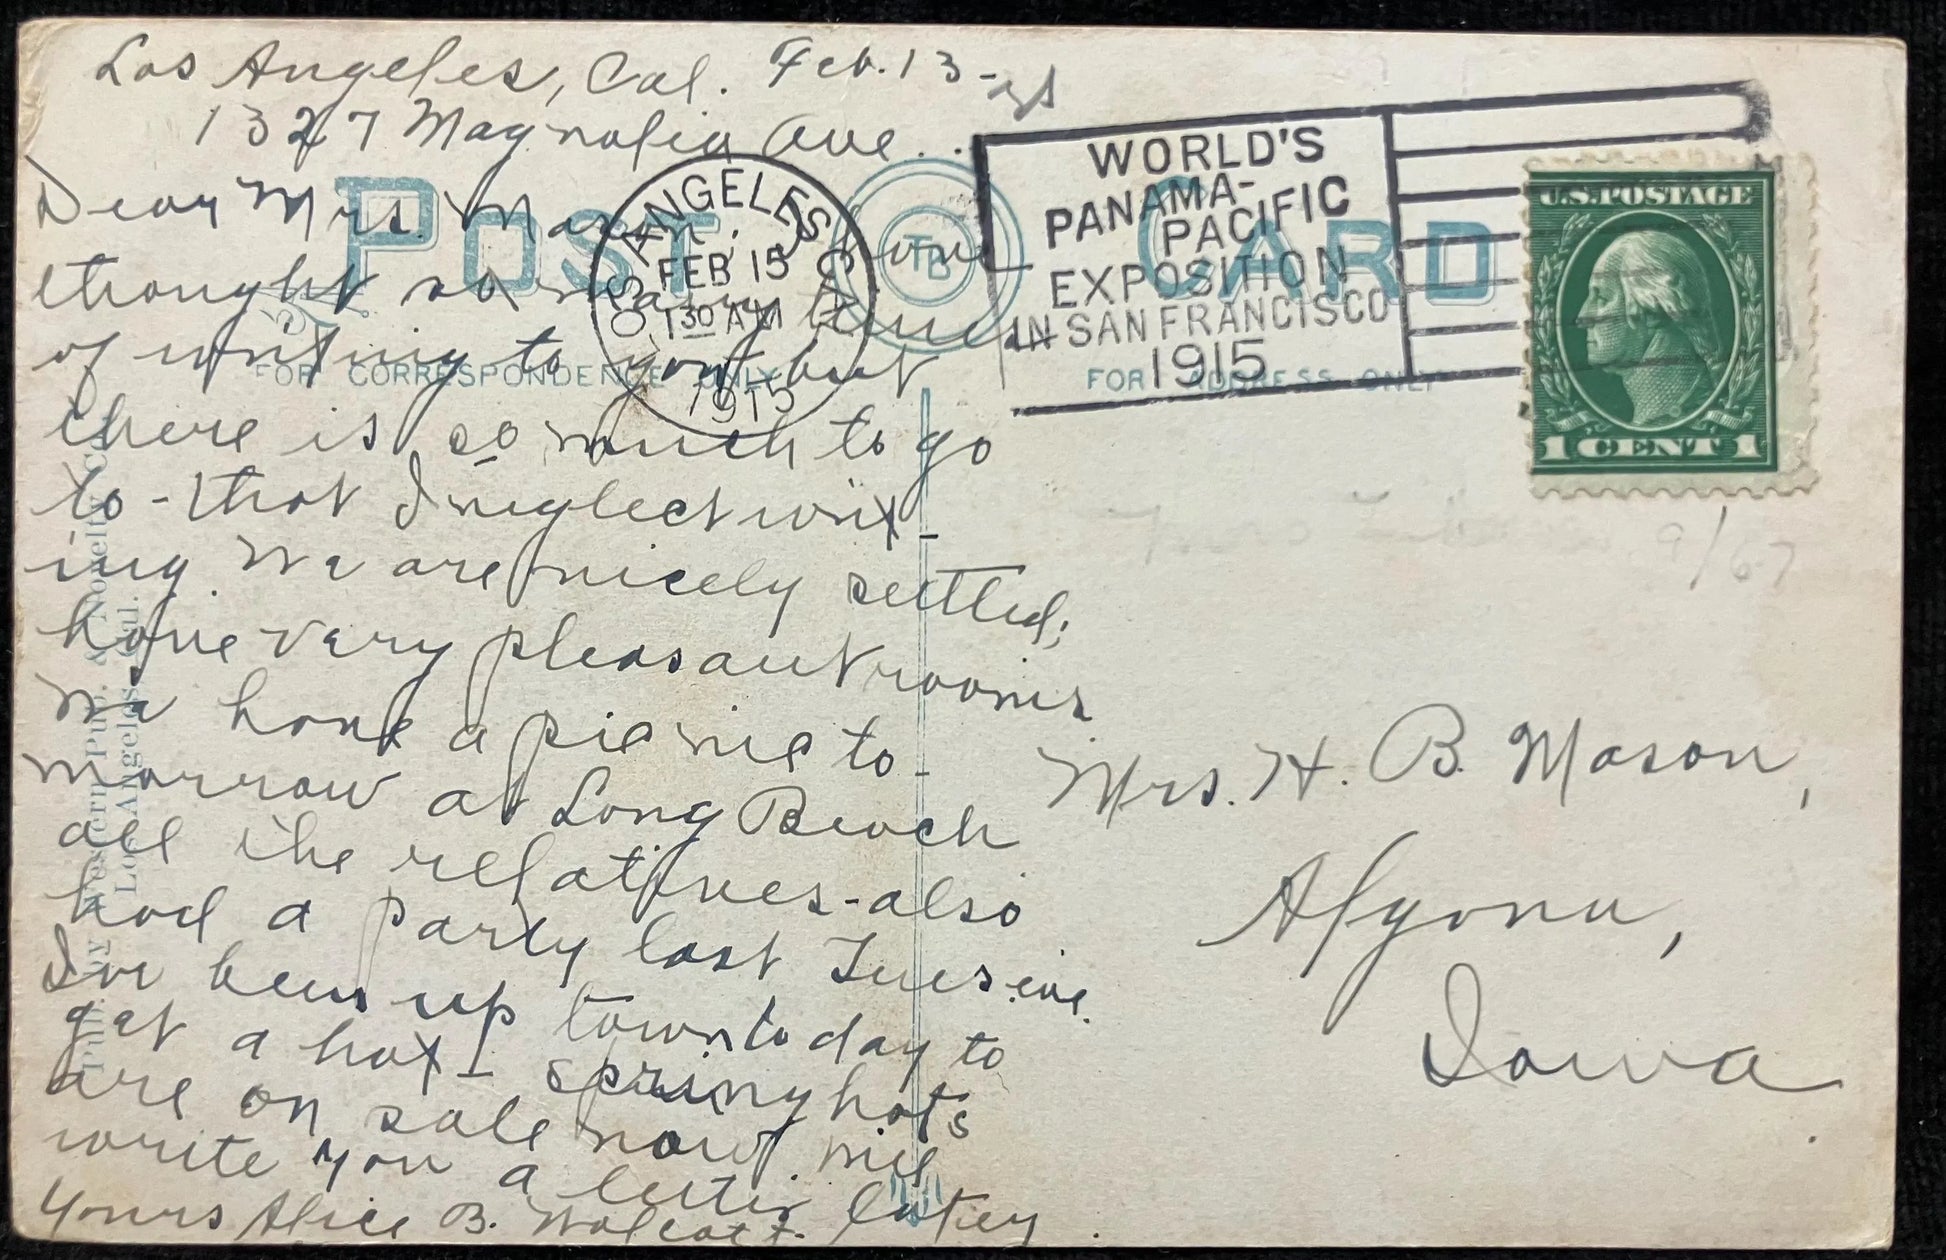 Los Angeles, Cal. Feb. 13 -
1327 Magnolia Ave.
Dear Mrs. Mason; I have
thought so many times
of writing to you but
there is so much to go
to - that I neglect writ-
ing. We are nicely settled;
have very pleasant rooms
We have a picnic to-
morrow at Long Beach
all the relatives - also
had a party last Tues. eve.
I've been up town to day to
get a hat - spring hats
are on sale now. will
write you a letter later
Yours Alice B. Wolcott.
POST CARD
TB
FOR CORRESPONDENCE ONLY
FOR ADDRESS ONLY
LOS ANGELES, CAL.
FEB 15
1 30 AM
1915
WORLD'S
PANAMA-
PACIFIC
EXPOSITION
IN SAN FRANCISCO
1915
U.S. POSTAGE
1 CENT 1
9/67
Mrs. H. B. Mason,
Algona,
Iowa
Publ. by Western Pub. & Novelty Co.
Los Angeles, Cal.